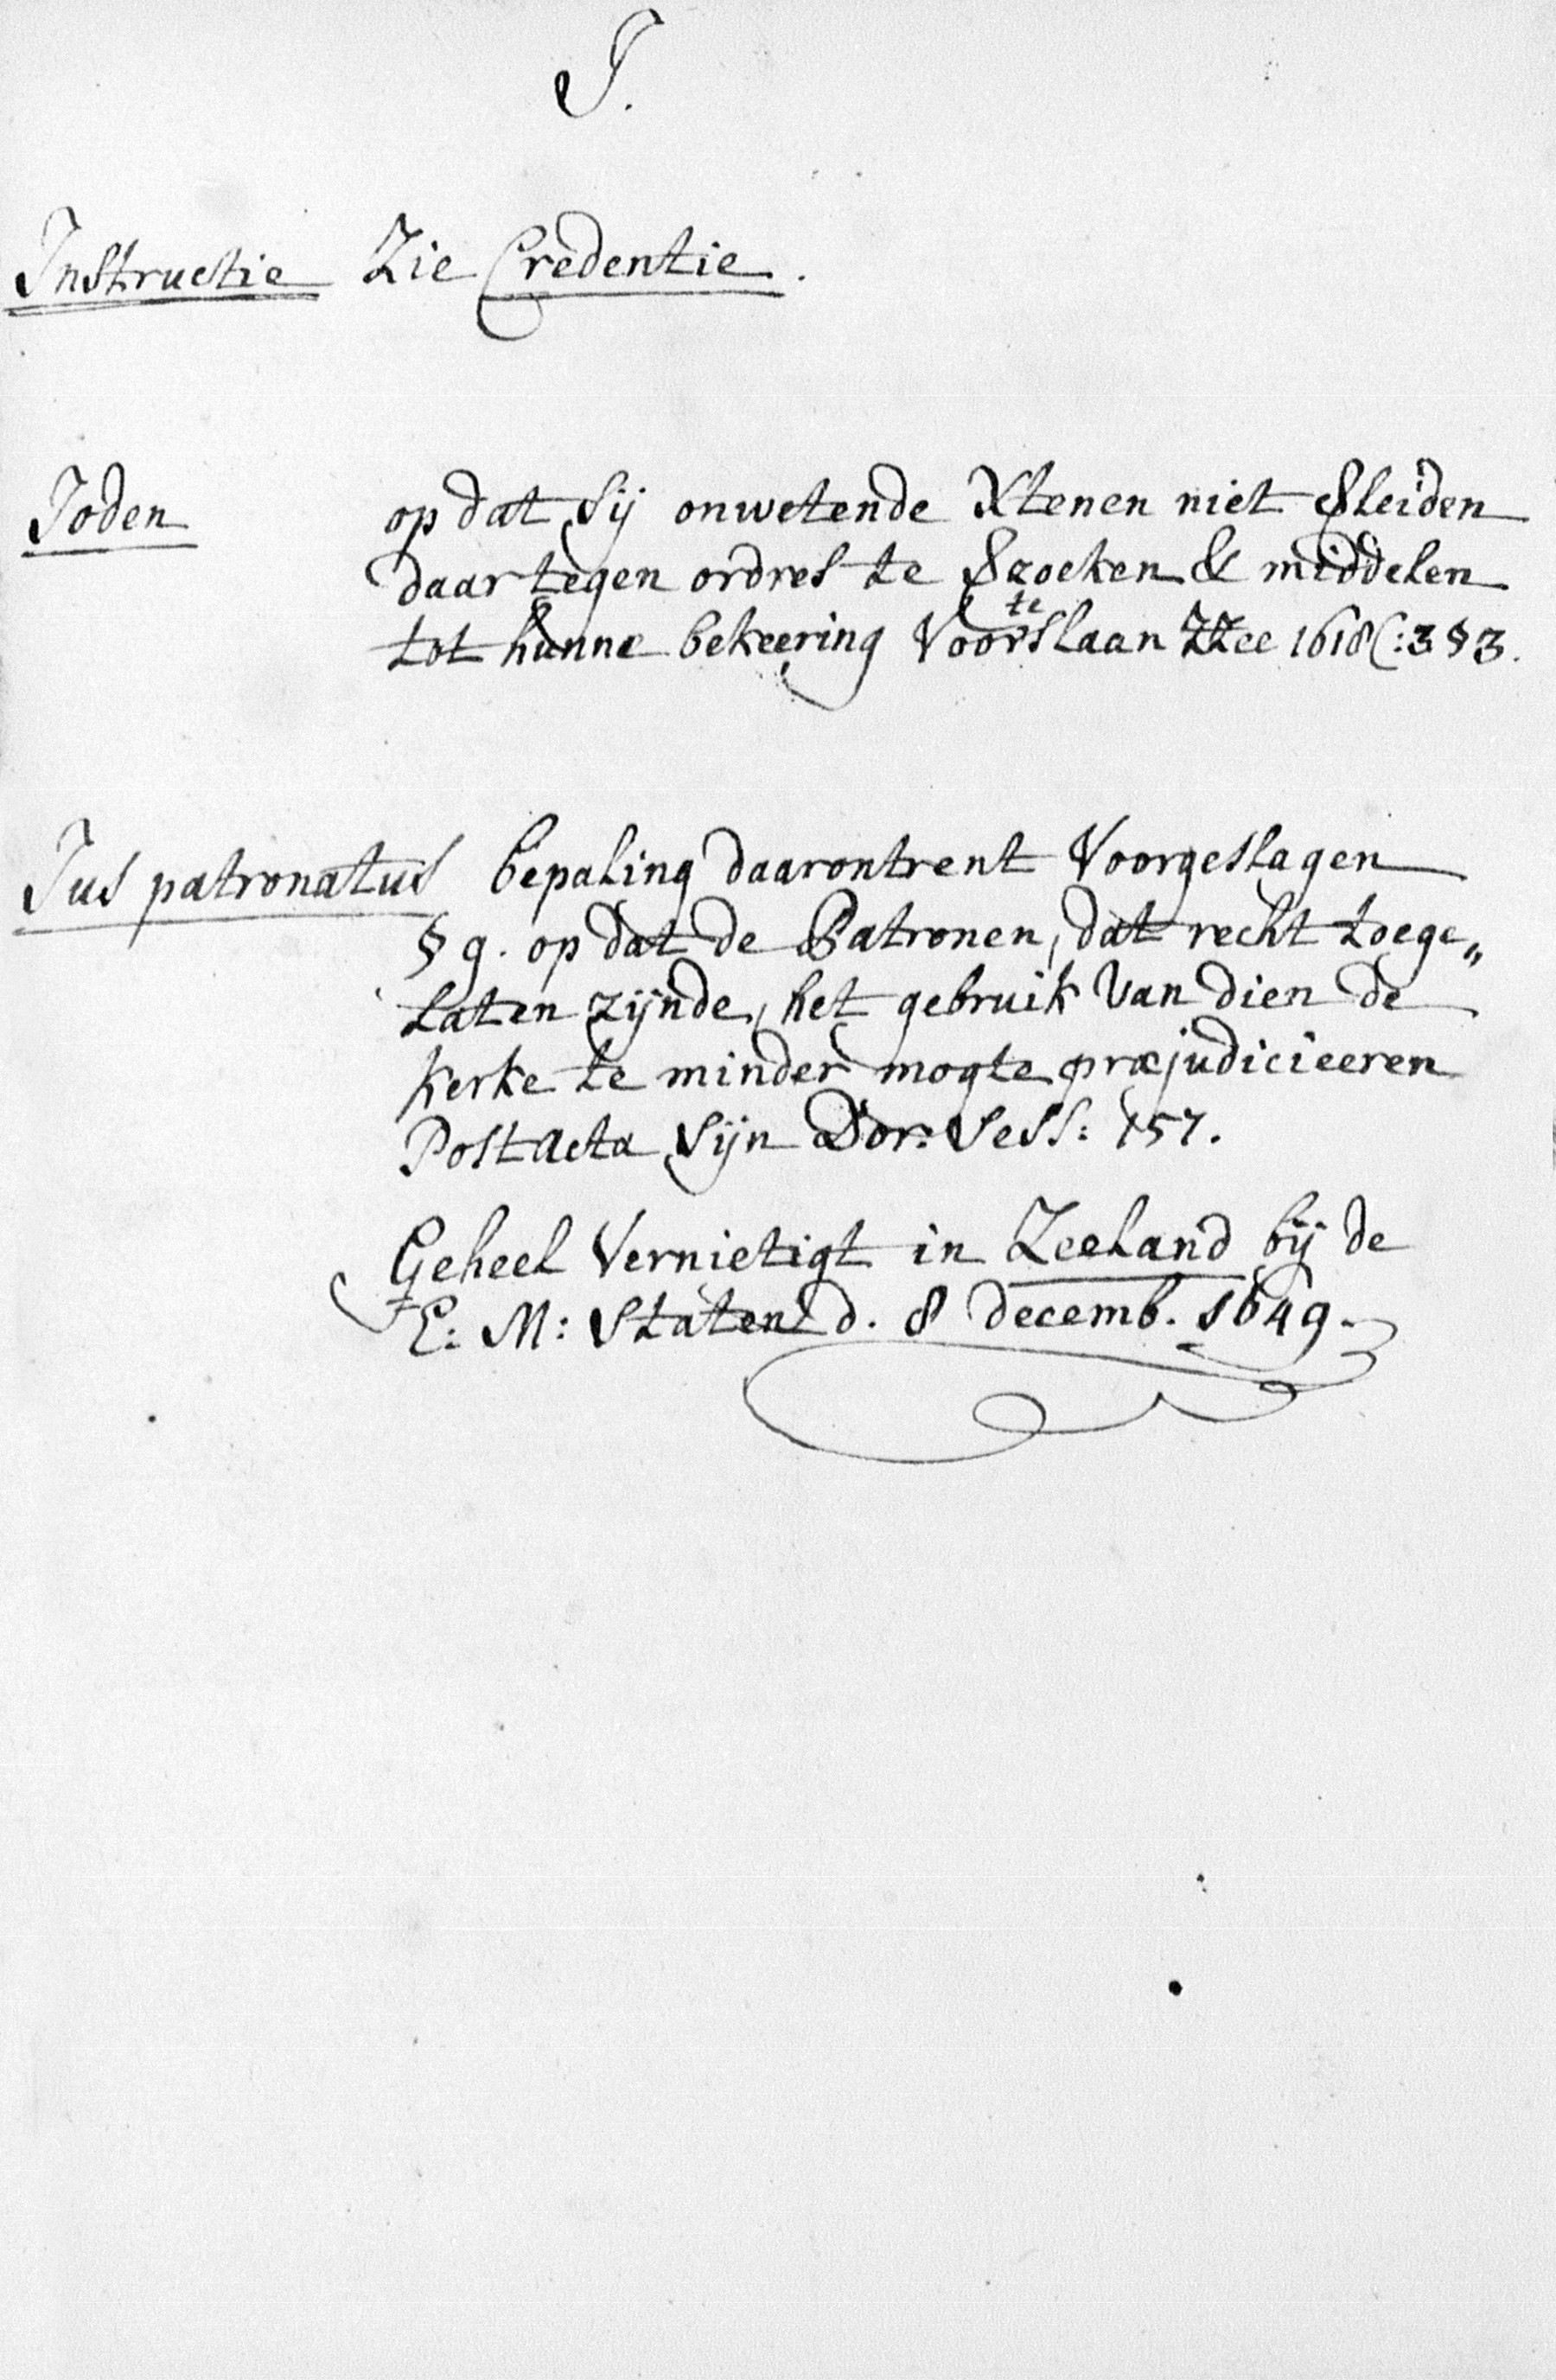 J.
Instructie Zie Credentie.
Joden op dat sij onwetende Xtenen niet verleiden
daar tegen ordres te verzoeken & middelen
te
tot hunne bekeering Voorslaan ZZee 1618 C: 3 § 3.
Jus patronatus bepaling daarontrent Voorgeslagen
§ 9. op dat de Patronen, dat recht toege„
laten zijnde, het gebruik Van dien de
Kerke te minder mogte præjudicieeren
Post acta Sijn Dor: Sess: 157.
Geheel Vernietigt in Zeeland bij de
E: M: Staten d. 8 decemb. 1649.